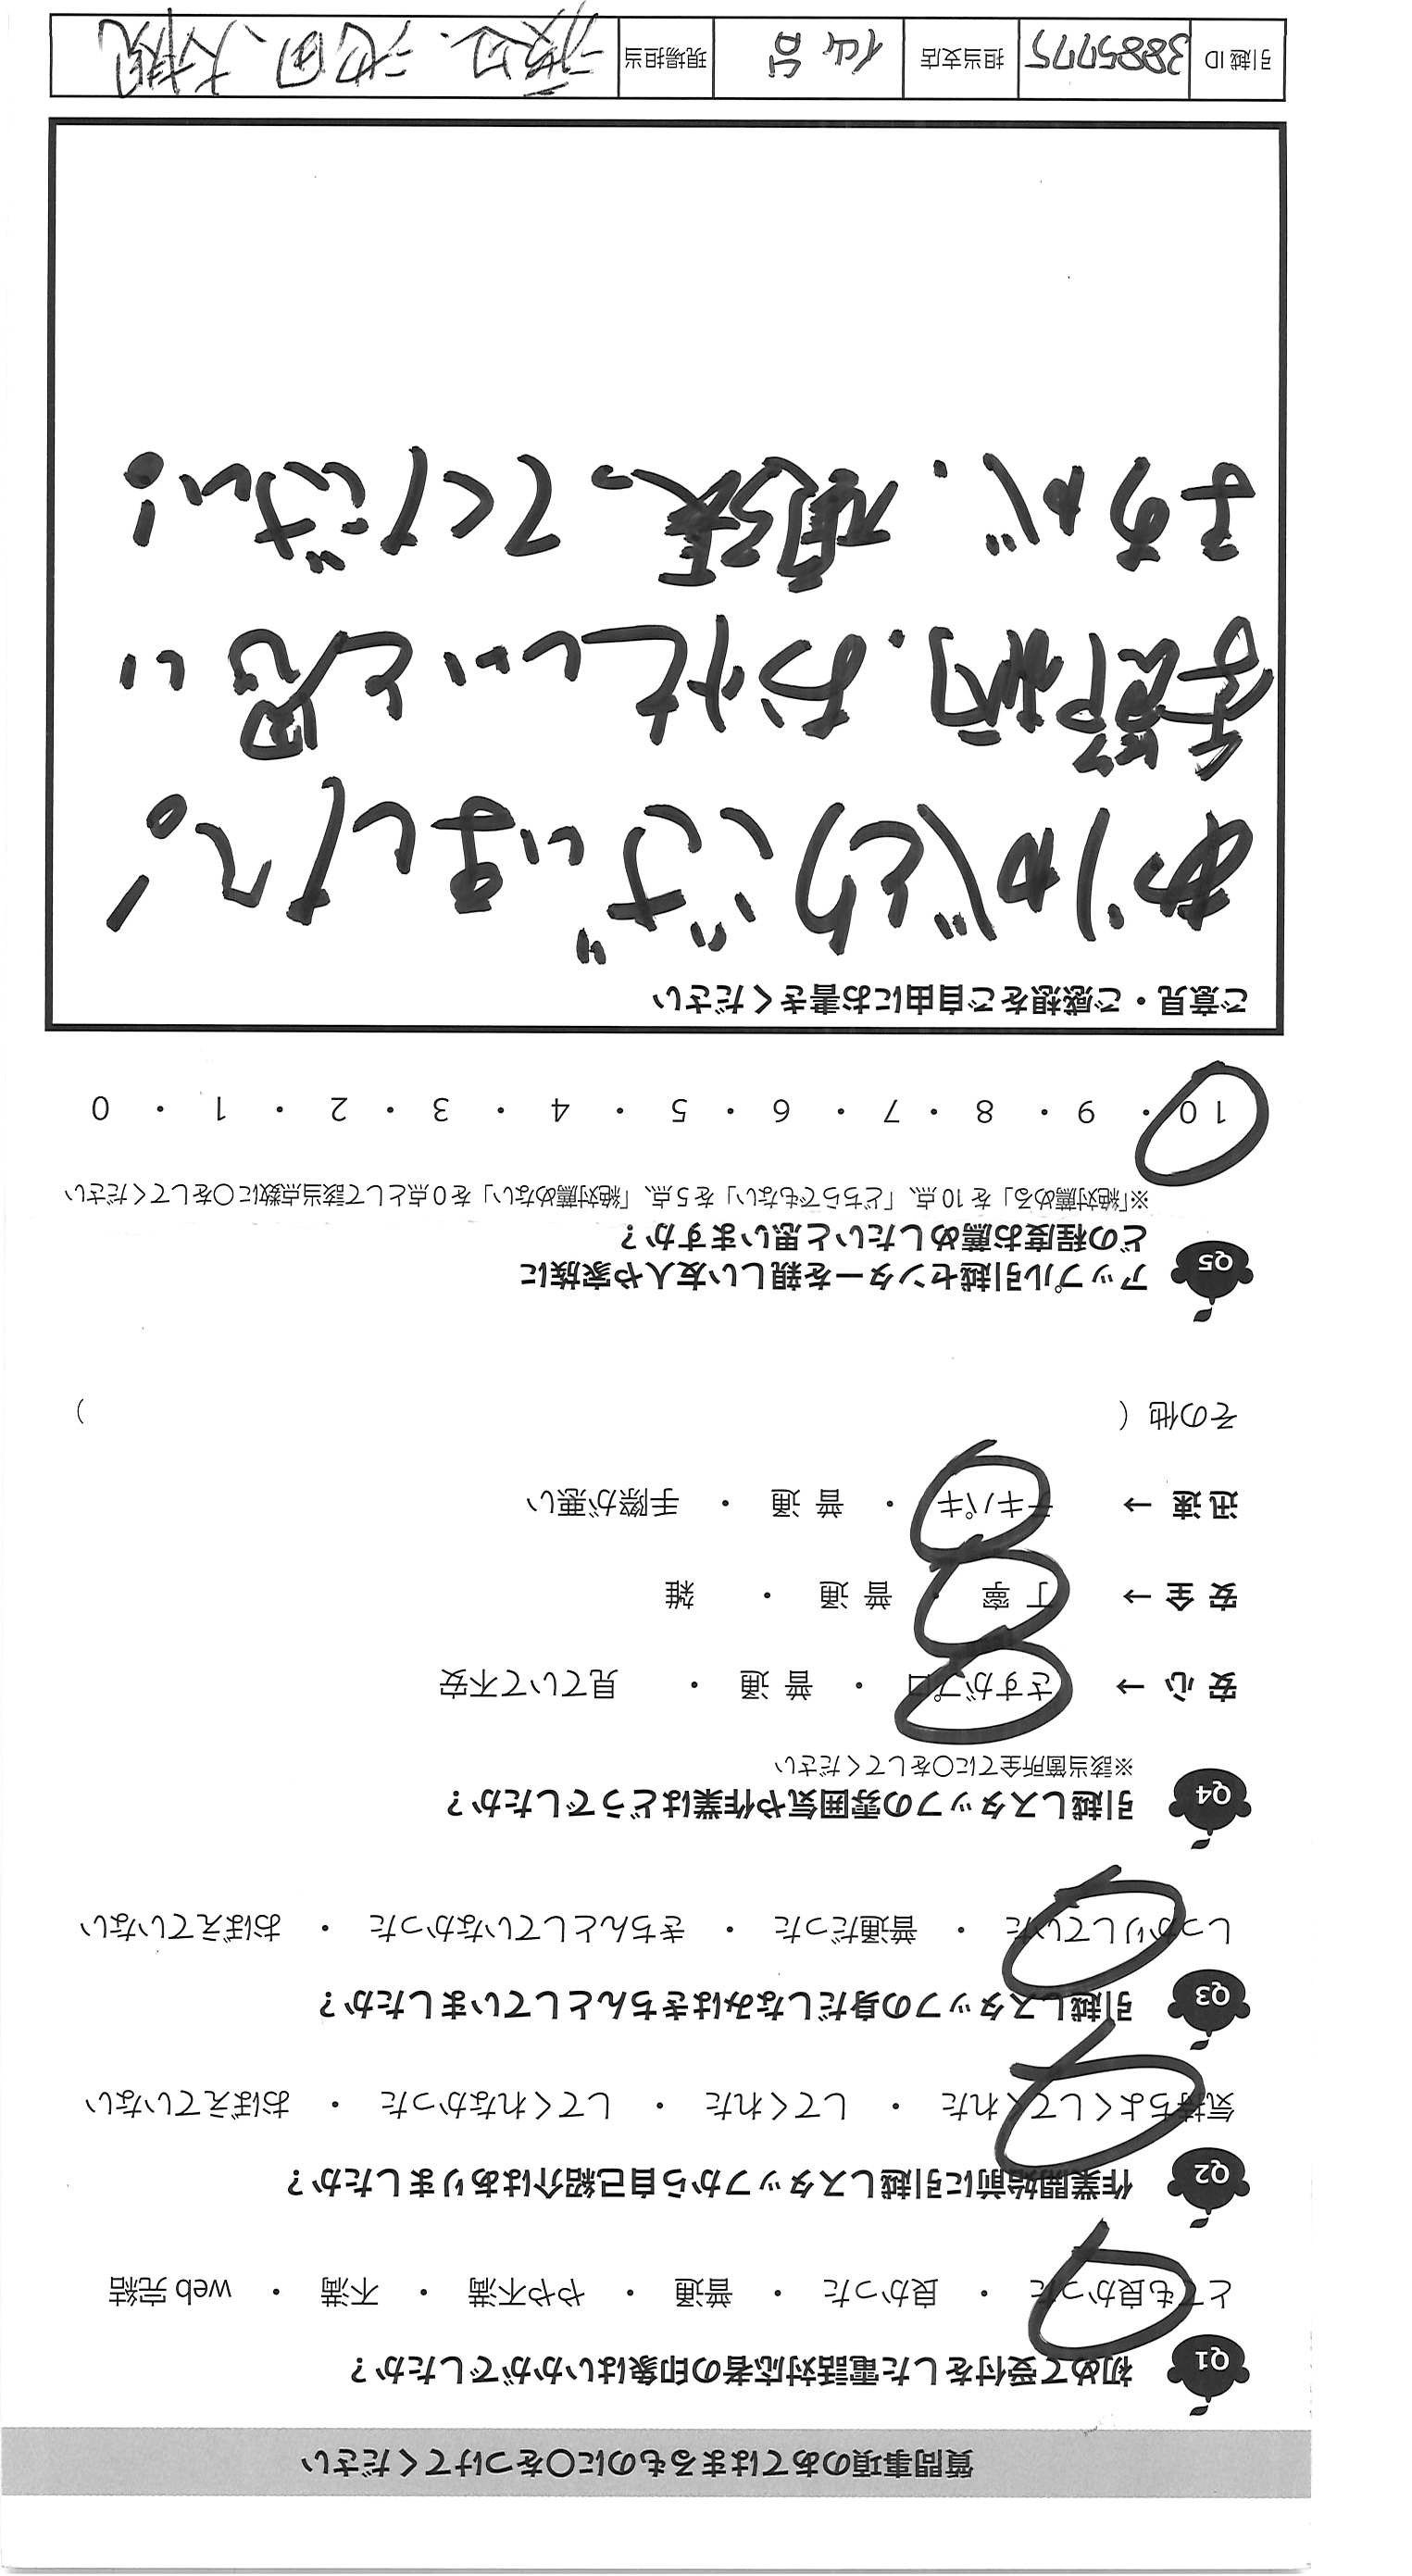 質問事項のあてはまるものに○をつけてください
Q1 初めて受付をした電話対応者の印象はいかがでしたか？
とても良かった ・ 良かった ・ 普通 ・ やや不満 ・ 不満 ・ web 完結
Q2 作業開始前に引越しスタッフから自己紹介はありましたか？
気持ちよくしてくれた ・ してくれた ・ してくれなかった ・ おぼえていない
Q3 引越しスタッフの身だしなみはきちんとしていましたか？
しっかりしていた ・ 普通だった ・ きちんとしていなかった ・ おぼえていない
Q4 引越しスタッフの雰囲気や作業はどうでしたか？
※該当箇所全てに○をしてください
安 心 → さすがプロ ・ 普 通 ・ 見ていて不安
安 全 → 丁 寧 ・ 普 通 ・ 雑
迅 速 → テキパキ ・ 普 通 ・ 手際が悪い
その他（ ）
Q5 アップル引越センターを親しい友人や家族に
どの程度お薦めしたいと思いますか？
※「絶対薦める」を 10 点、「どちらでもない」を 5 点、「絶対薦めない」を 0 点として該当点数に○をしてください
10 ・ 9 ・ 8 ・ 7 ・ 6 ・ 5 ・ 4 ・ 3 ・ 2 ・ 1 ・ 0
ご意見・ご感想をご自由にお書きください
ありがとうございました。!
季節柄、お忙しいと思い
ますが、頑張ってください!
引越 ID 3885775 担当支店 仙台 現場担当 渡辺、池田、大槻